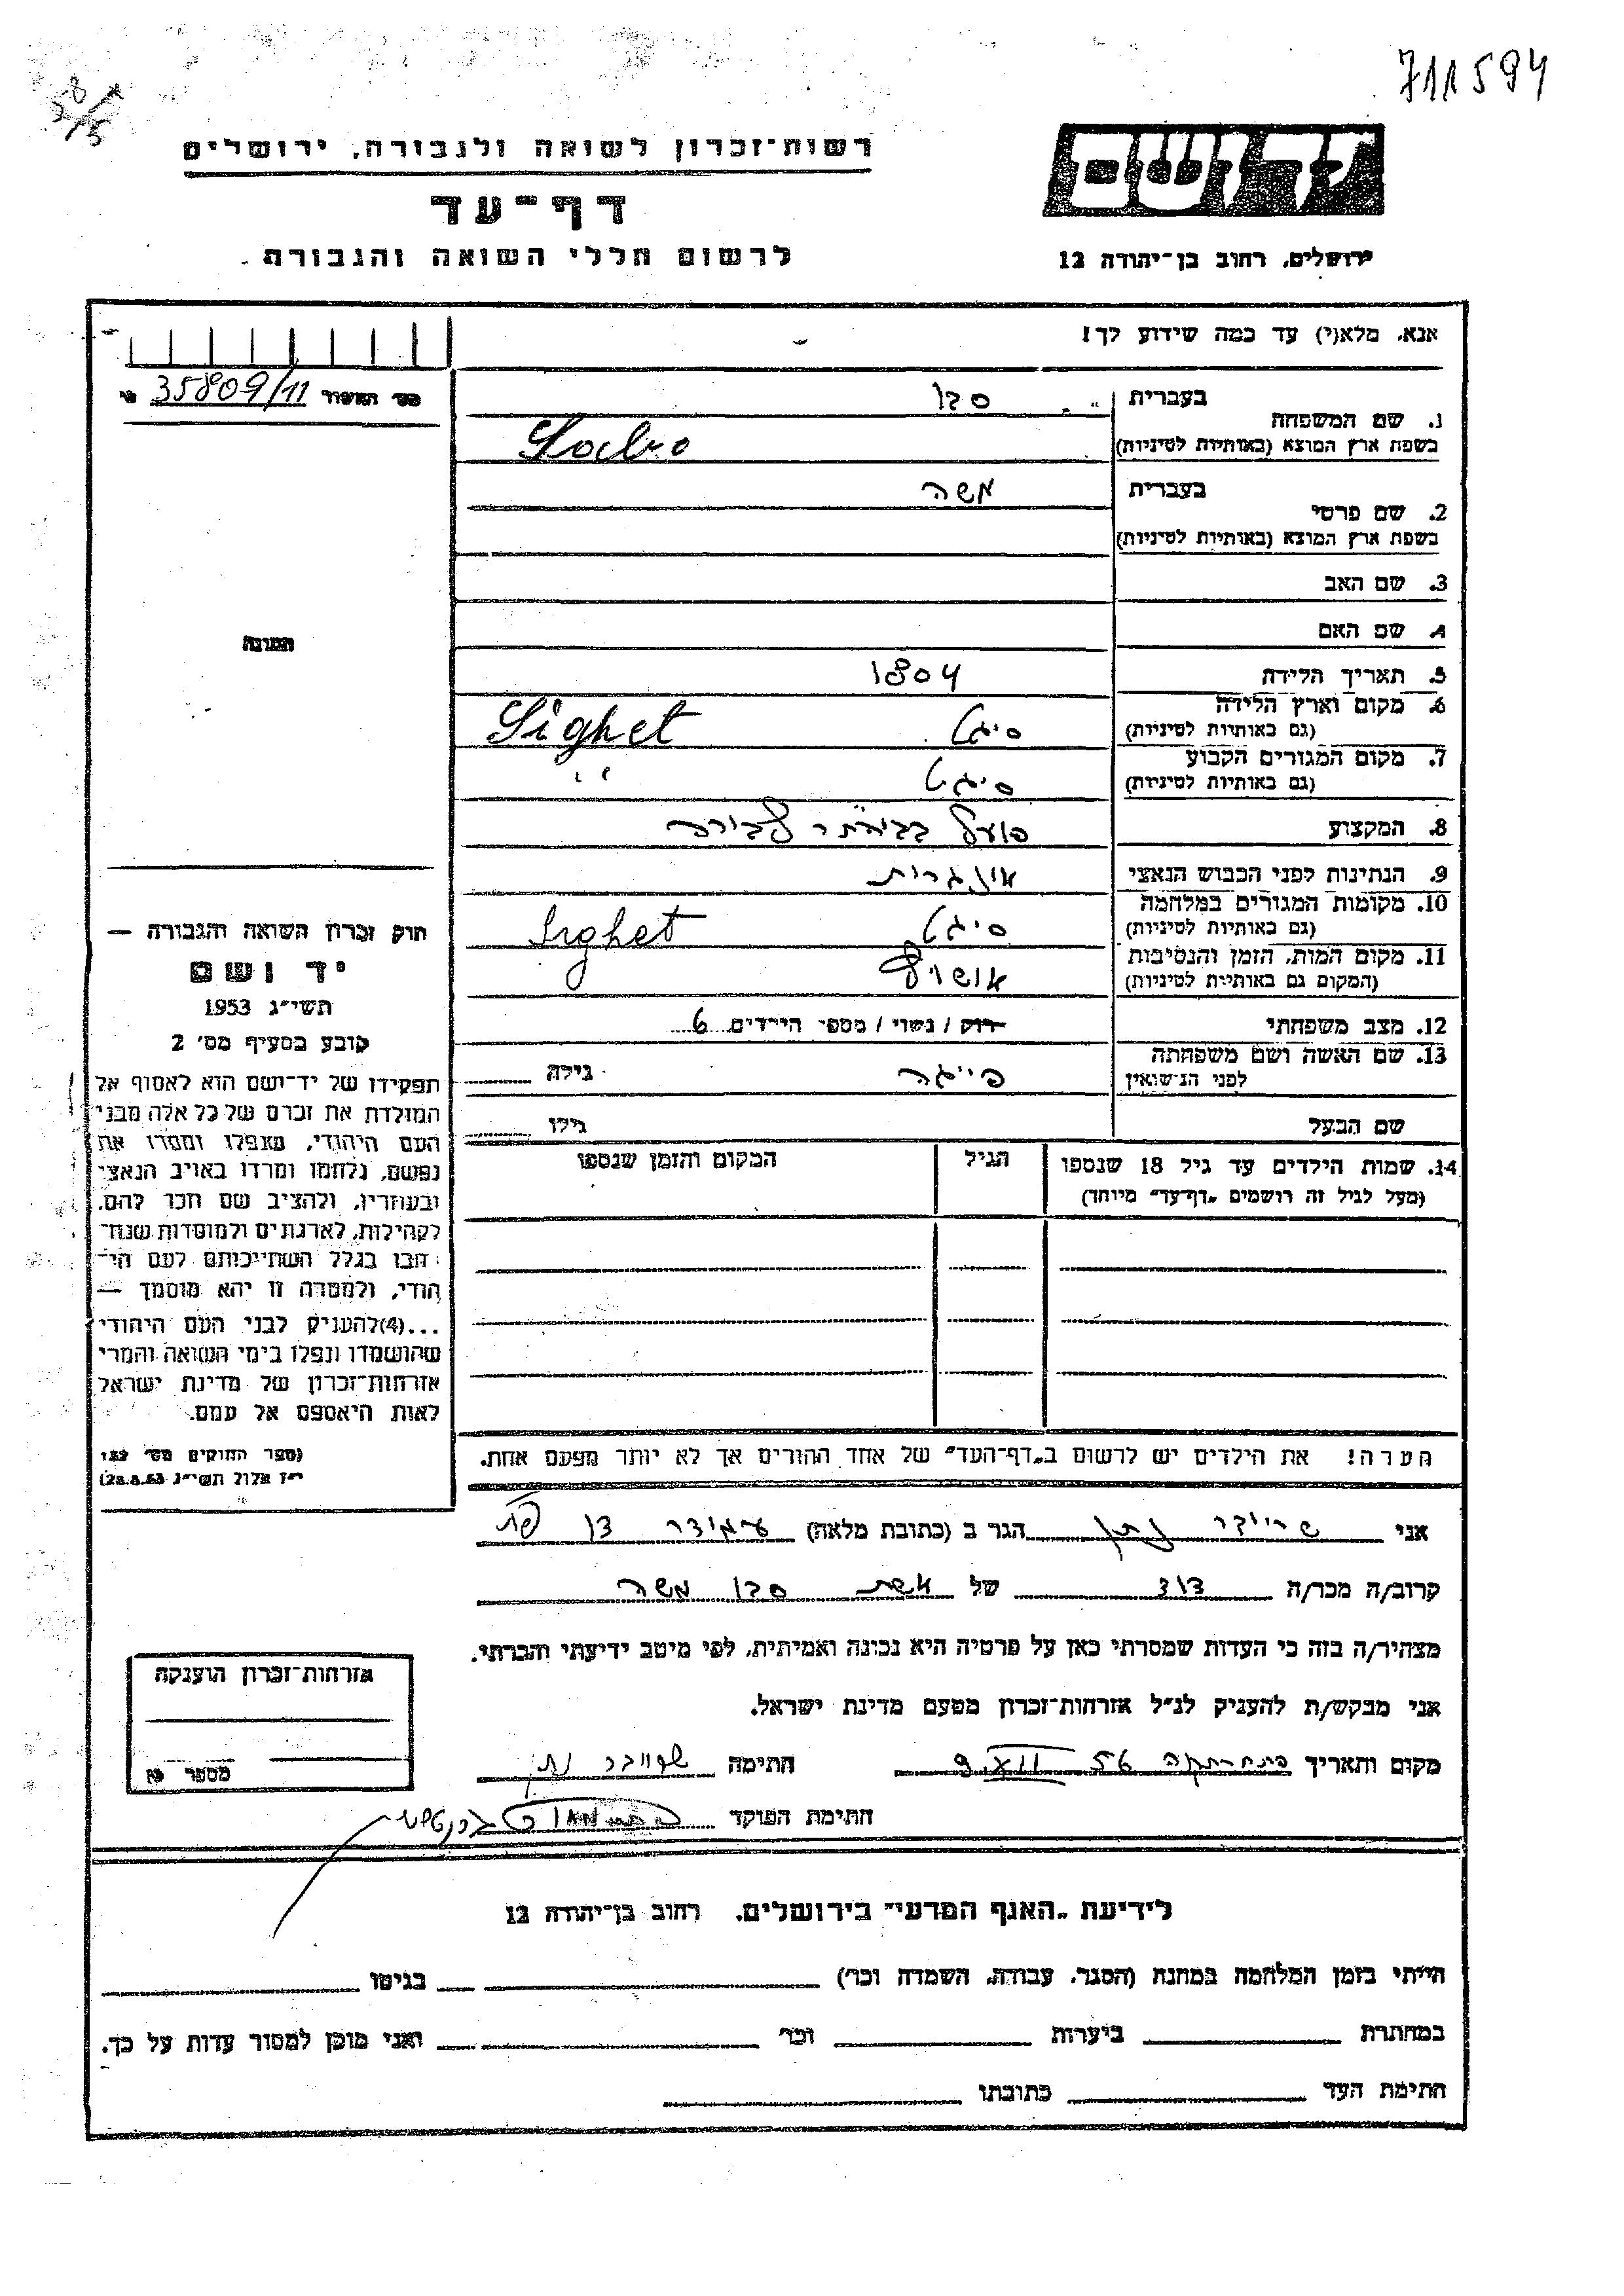 711594
רשות־זכרון לשואה ולגבורה, ירושלים
דף־עד
לרשום חללי השואה והגבורה
ירושלים, רחוב בן־יהודה 12
אנא, מלא(י) עד כמה שידוע לך!
35809/11
1. שם המשפחה
בעברית
בשפת ארץ המוצא (באותיות לטיניות)
2. שם פרטי
בעברית משה
בשפת ארץ המוצא (באותיות לטיניות)
3. שם האב
4. שם האם
תמונה
5. תאריך הלידה 1804
6. מקום וארץ הלידה
(גם באותיות לטיניות) סיגט Sighet
7. מקום המגורים הקבוע
(גם באותיות לטיניות) סיגט
8. המקצוע פועל
9. הנתינות לפני הכבוש הנאצי
10. מקומות המגורים במלחמה
(גם באותיות לטיניות) סיגט Sighet
11. מקום המות, הזמן והנסיבות
(המקום גם באותיות לטיניות)
12. מצב משפחתי רוק / נשוי / מספר הילדים 6
13. שם האשה ושם משפחתה
לפני הנישואין פייגה גילה
שם הבעל גילו
14. שמות הילדים עד גיל 18 שנספו הגיל המקום והזמן שנספו
(מעל לגיל זה רושמים „דף־עד״ מיוחד)
חוק זכרון השואה והגבורה —
יד ושם
תשי״ג 1953
קובע בסעיף מס׳ 2
תפקידו של יד־ושם הוא לאסוף אל
המולדת את זכרם של כל אלה מבני
העם היהודי, שנפלו ומסרו את
נפשם, נלחמו ומרדו באויב הנאצי
ובעוזריו, ולהציב שם וזכר להם,
לקהילות, לארגונים ולמוסדות שנח־
רבו בגלל השתייכותם לעם הי־
הודי, ולמטרה זו יהא מוסמך —
...(4)להעניק לבני העם היהודי
שהושמדו ונפלו בימי השואה והמרי
אזרחות־זכרון של מדינת ישראל
לאות היאספם אל עמם.
(ספר החוקים מס׳ 132
י״ז אלול תשי״ג 28.8.53)
הערה! את הילדים יש לרשום ב„דף־העד״ של אחד ההורים אך לא יותר מפעם אחת.
אני נתן הגר ב (כתובת מלאה)
קרוב/ה מכר/ה דוד של אשת משה
מצהיר/ה בזה כי העדות שמסרתי כאן על פרטיה היא נכונה ואמיתית, לפי מיטב ידיעתי והכרתי.
אני מבקש/ת להעניק לנ״ל אזרחות־זכרון מטעם מדינת ישראל.
מקום ותאריך 9.VII.56 חתימה
חתימת הפוקד
אזרחות־זכרון הוענקה
לידיעת „האגף המדעי״ בירושלים, רחוב בן־יהודה 12
הייתי בזמן המלחמה במחנה (הסגר, עבודה, השמדה וכו׳) בגיטו
במחתרת ביערות וכו׳ ואני מוכן למסור עדות על כך.
חתימת העד כתובתו